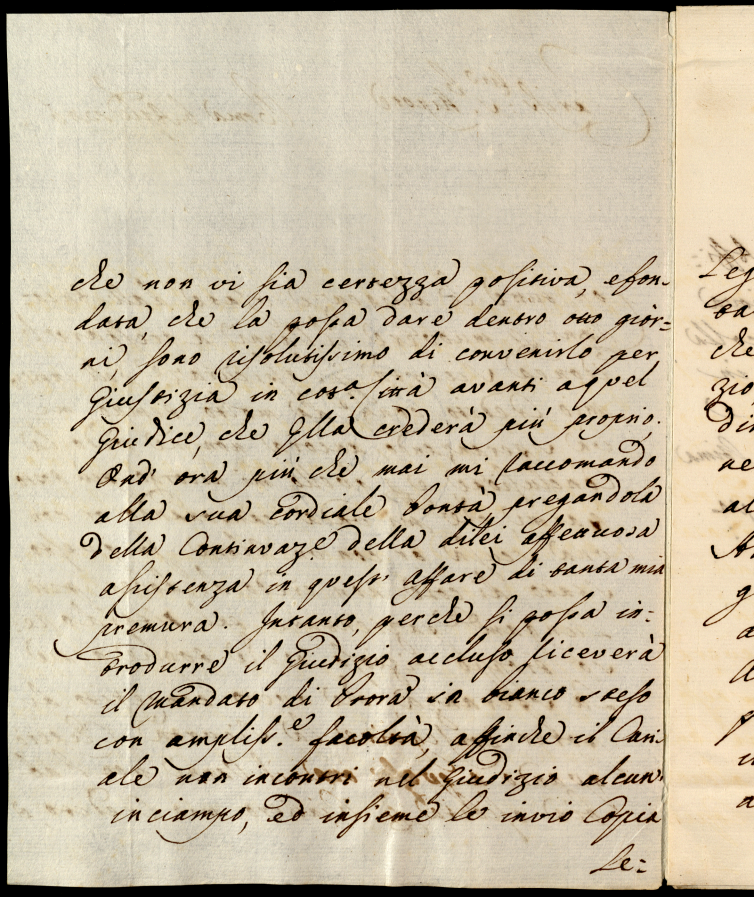 che non vi sia certezza positiva, e fon-
data, che la possa dare dentro otto gior=
ni, sono risolutissimo di convenirlo per
Giustizia in cot.ª Città avanti a quel
Giudice, che Ella crederà più proprio.
Ond' ora più che mai mi raccomando
alla sua cordiale bontà pregandola
della Continuaz.e della di lei affettuosa
assistenza in quest' affare di tanta mia
premura. Intanto, perche si possa in:
trodurre il Giudizio accluso riceverà
il Mandato di Prora in bianco steso
con ampliss.e facoltà, affinche il Can:
ale non incontri nel Giudizio alcun'
inciampo, ed insieme le invio Copia
Le=
Leg
ta
che
zio
din
ne
al
g
a
p